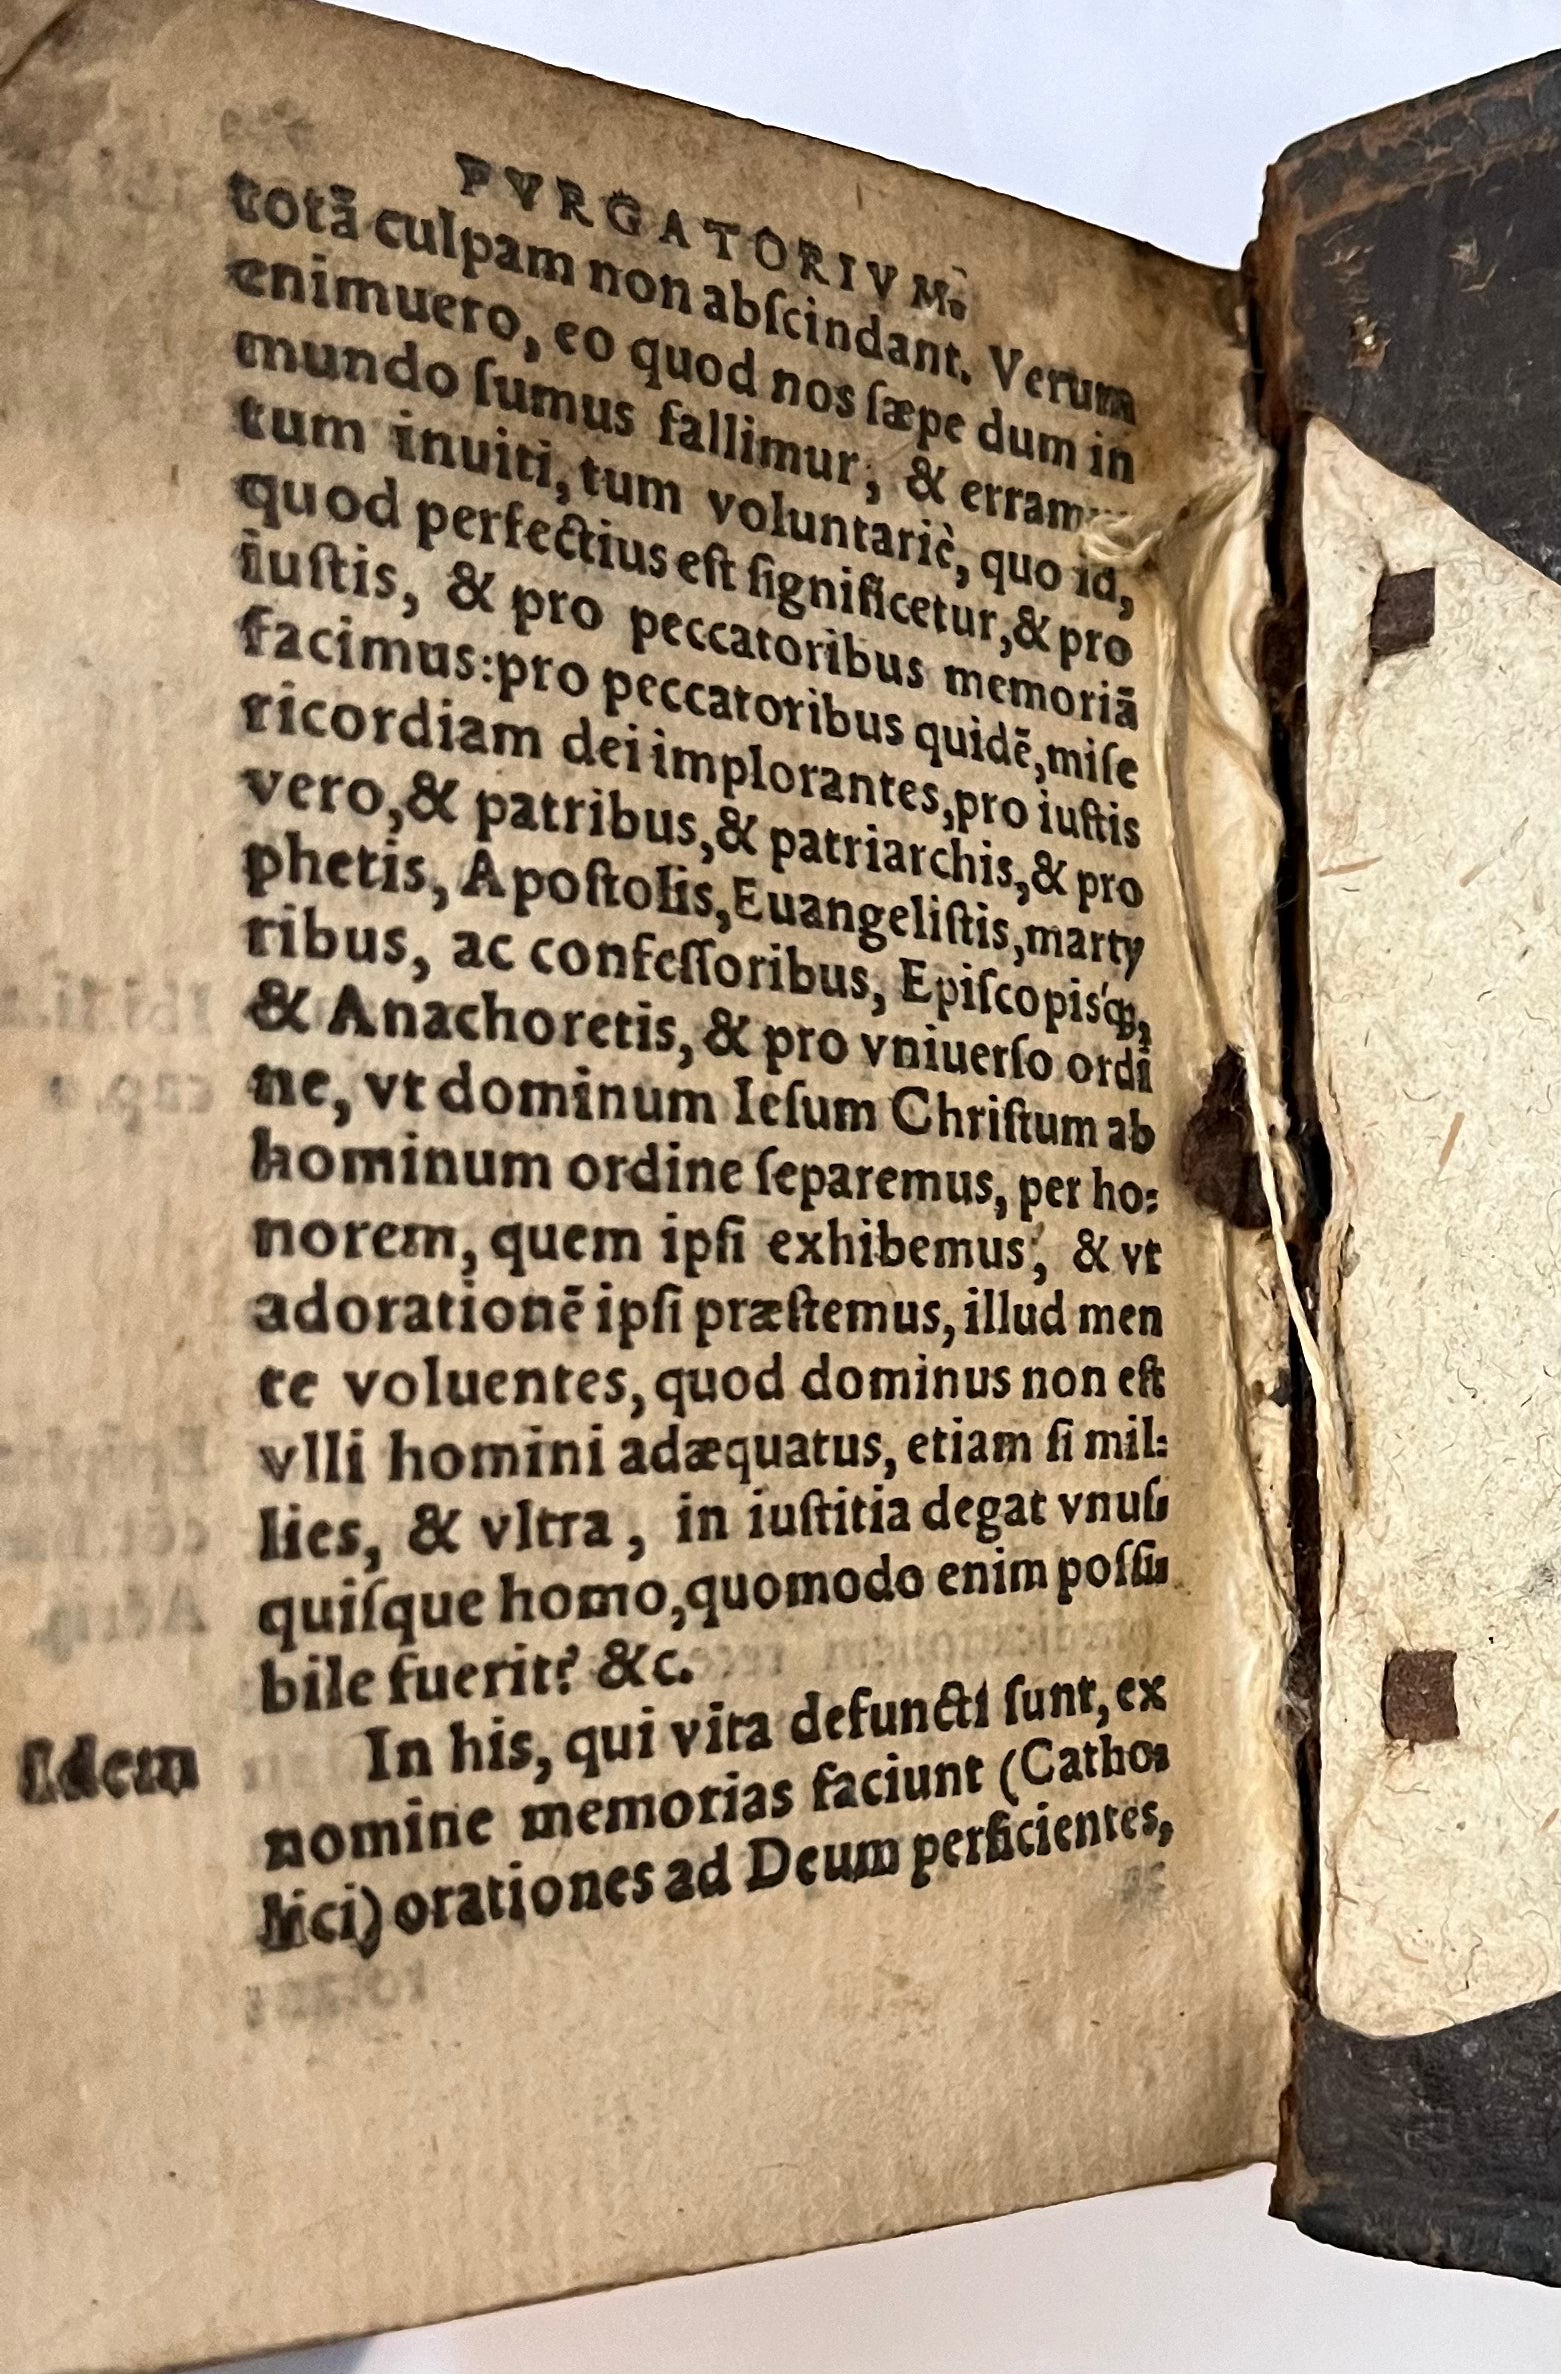 PVRGATORIVM.
totā culpam non abſcindant. Verum
enimuero, eo quod nos ſæpe dum in
mundo ſumus fallimur, & erram
tum inuiti, tum voluntariè, quo id,
quod perfectius eſt ſignificetur, & pro
iuſtis, & pro peccatoribus memoriā
facimus: pro peccatoribus quidē, miſe
ricordiam dei implorantes, pro iuſtis
vero, & patribus, & patriarchis, & pro
phetis, Apoſtolis, Euangeliſtis, marty
ribus, ac confeſſoribus, Epiſcopisq́;,
& Anachoretis, & pro vniuerſo ordi
ne, vt dominum Ieſum Chriſtum ab
hominum ordine ſeparemus, per ho:
norem, quem ipſi exhibemus, & vt
adorationē ipſi præſtemus, illud men
te voluentes, quod dominus non eſt
vlli homini adæquatus, etiam ſi mil:
lies, & vltra, in iuſtitia degat vnuſ:
quiſque homo, quomodo enim poſſi:
bile fuerit? &c.
Idem In his, qui vita defuncti ſunt, ex
nomine memorias faciunt (Catho:
lici) orationes ad Deum perficientes,